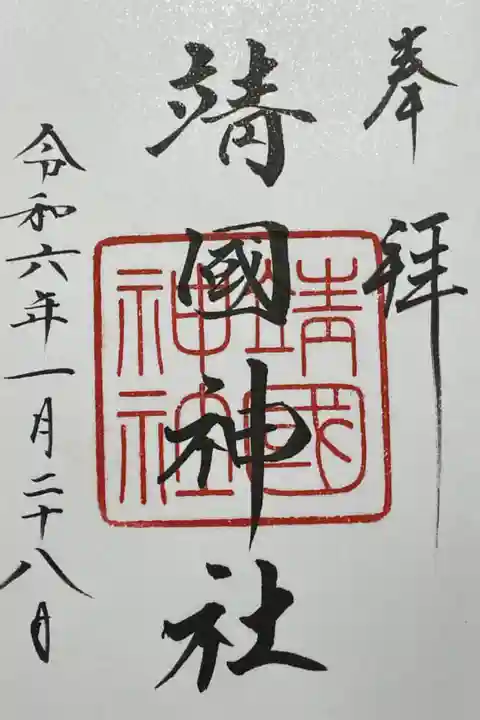 奉拝
靖國神社
靖國
神社
令和六年一月二十八日